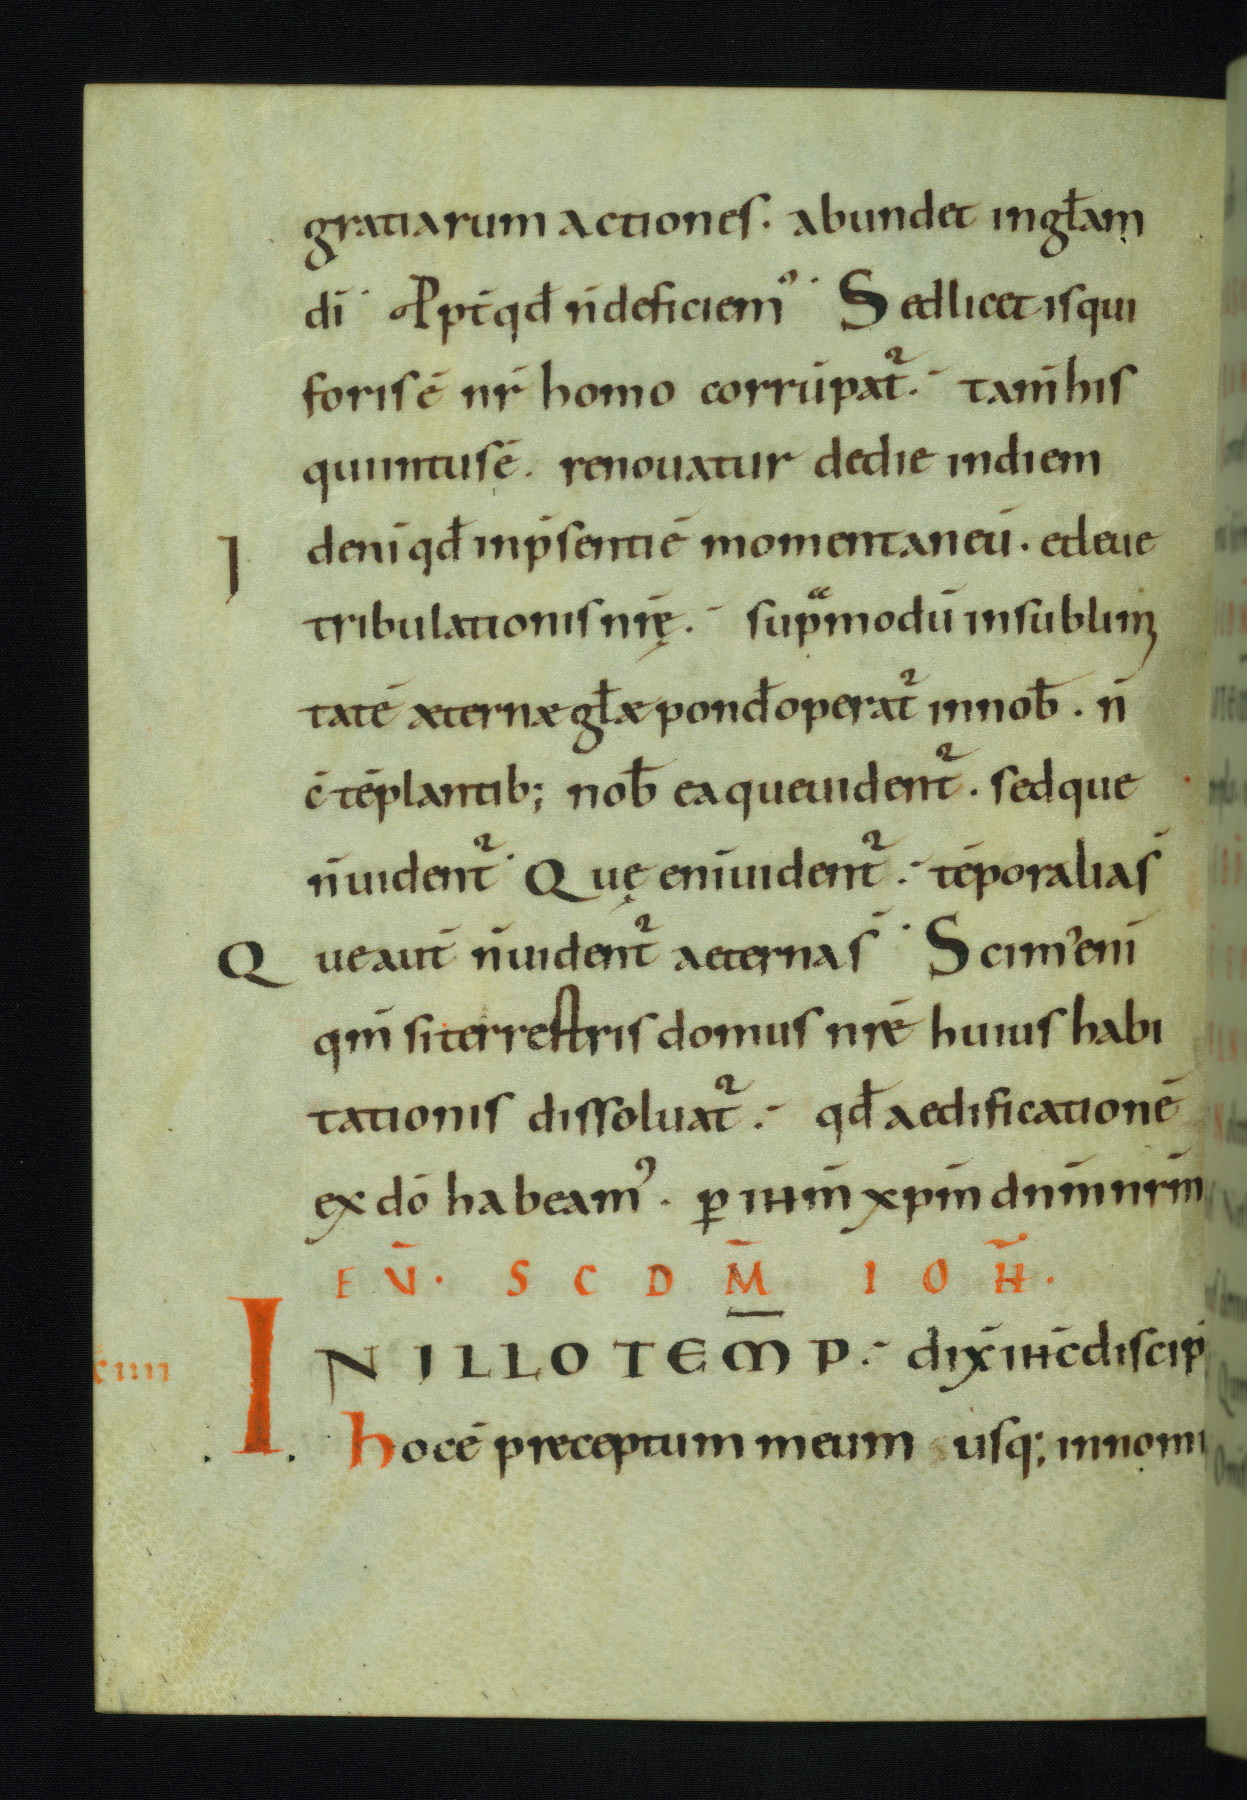 gratiarum actiones. abundet in gl̄am
dī. P̱pt̄ qđ n̄ deficiem᾽. Sed licet is qui
foris ē nr̄ homo corrūpat᷑. tam̄ his
qui intus ē. renouatur de die in diem
I d enī qđ in p̄senti ē momentaneū. et leue
tribulationis nr̄ę. supͣmodū in sublimi
tatē æternæ gl̄æ pond̄ operat᷑ in nob̄. n̄
c̄tēplantib; nob̄ ea que uident᷑. sed que
n̄ uident᷑. Quę enī uident᷑. tēporalia s̄
Que aut̄ n̄ uident᷑ aeterna s̄. Scim᾽ enī
qm̄ si terrestris domus nr̄e huius habi
tationis dissoluat᷑. qđ aedificationē
ex dō habeam᾽. ꝑ ihm̄ xpm̄ dnm̄ nrm̄
EV̄. SCDM̄ IOH̄.
IN ILLO TEM̄P. dix̄ ihc̄ discip
xiiii
hoc ē preceptum meum usq; in nomi